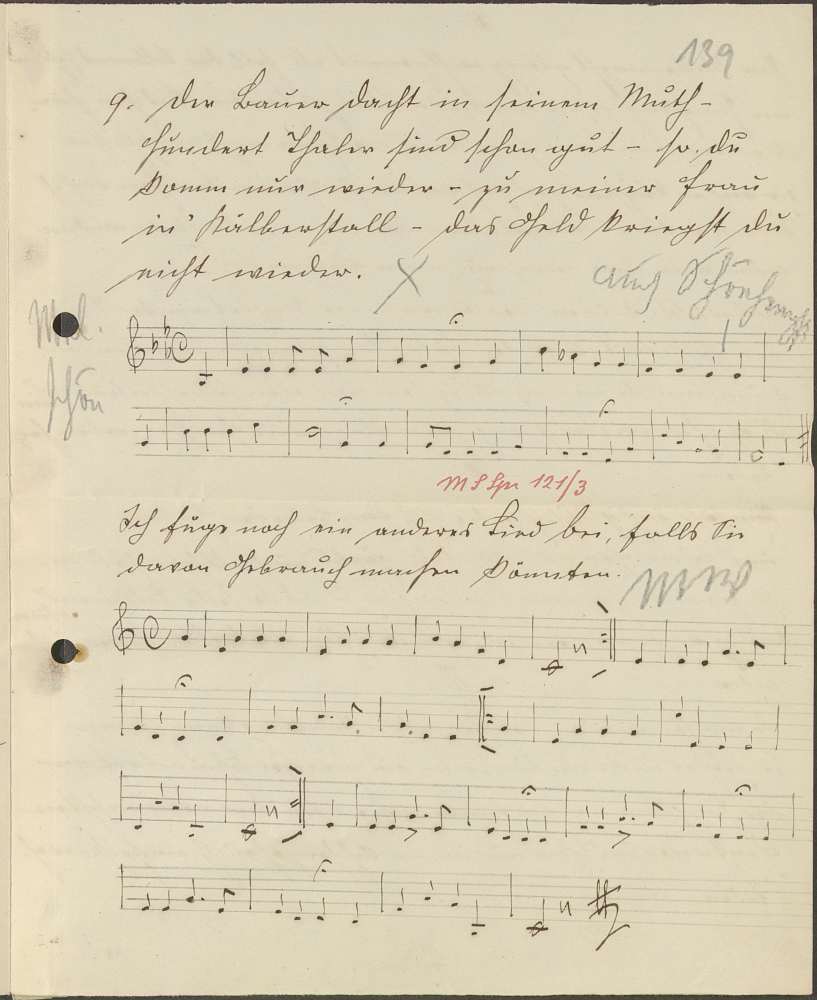 139
9. Der Bauer dacht in seinem Muth -
hundert Thaler sind schon gut - so. du
komm nur wieder - zu meiner Frau
in' Kälberstall - das Geld kriegst du
nicht wieder.
Mel.
schön
M S Spr 121/3
Ich füge noch ein anderes Lied bei, falls Sie
davon Gebrauch machen könnten.